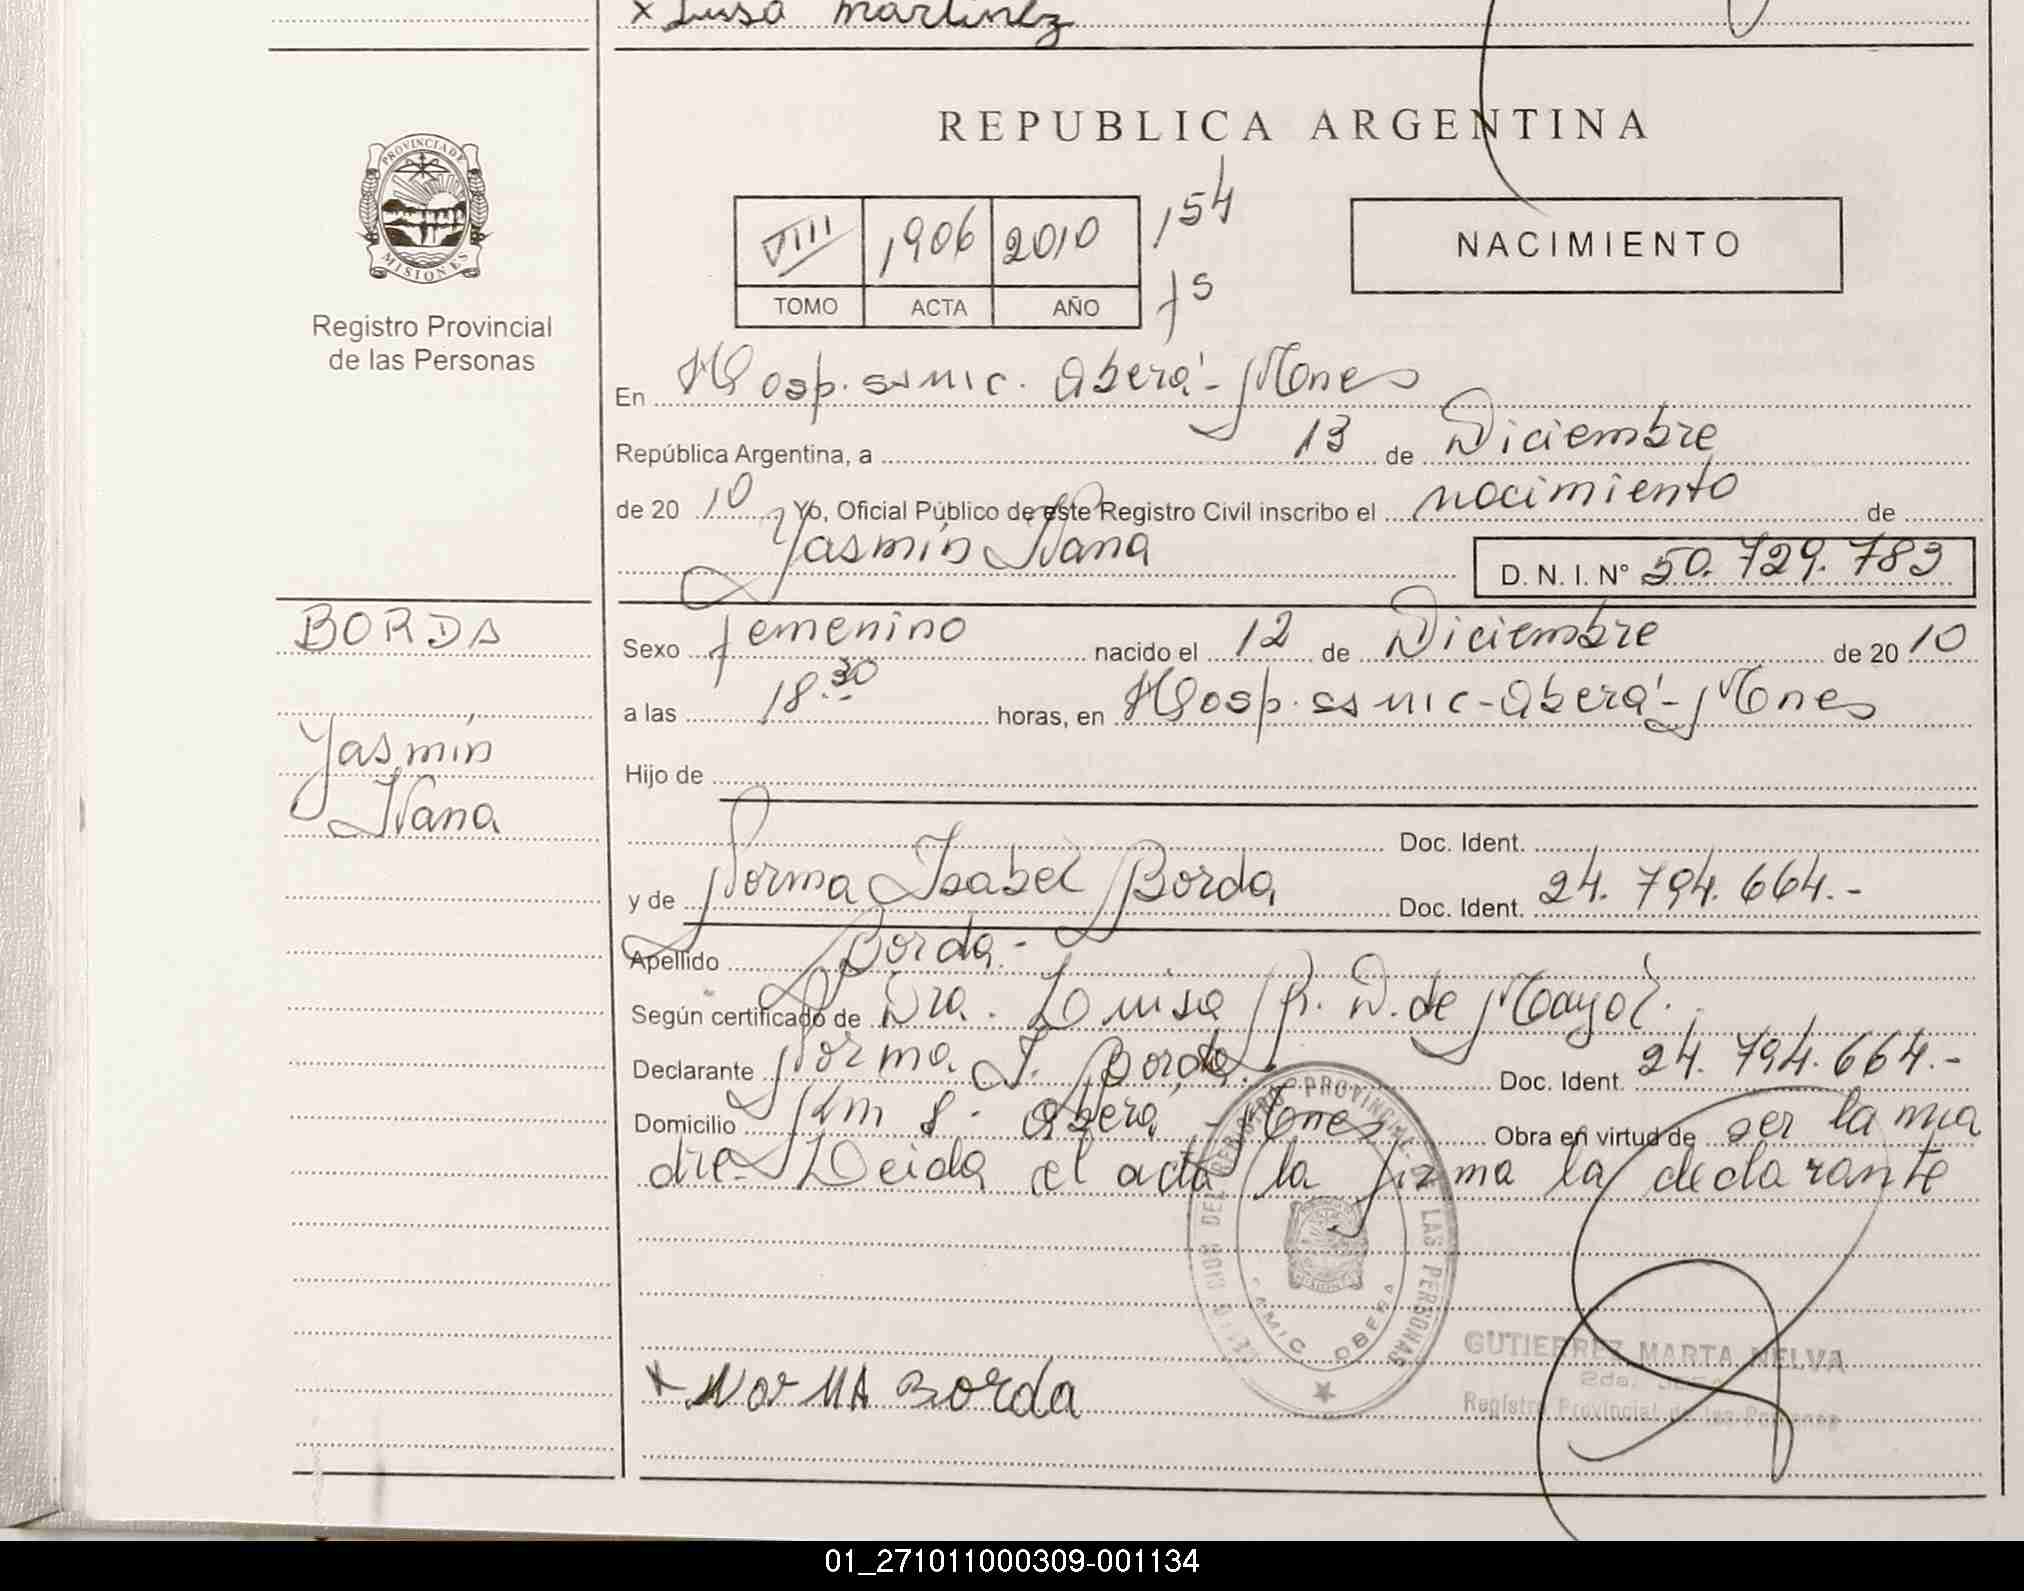 x Lusa Martinez
PROVINCIA DE
MISIONES
Registro Provincial
de las Personas
REPUBLICA ARGENTINA
VIIII 1906 2010 154
TOMO ACTA AÑO fs
NACIMIENTO
En Hosp. ssmic. Oberá - Mnes
República Argentina, a 13 de Diciembre
de 20 10 Yo, Oficial Público de este Registro Civil inscribo el nacimiento de
Yasmín Ivana D. N. I. N° 50.729.783
BORDA
Yasmín
Ivana
Sexo femenino nacido el 12 de Diciembre de 20 10
a las 18.30 horas, en Hosp. ssmic - Oberá - Mnes
Hijo de
Doc. Ident.
y de Norma Isabel Borda Doc. Ident. 24.794.664.-
Apellido Borda -
Según certificado de Dra. Luisa R. D. de Mayol.
Declarante Norma I. Borda. Doc. Ident 24.794.664.-
Domicilio Km 8 - Oberá - Mnes Obra en virtud de ser la ma
dre - Leída el acta la firma la declarante
REGISTRO PROVINCIAL LAS PERSONAS
OBERA
x NorMA Borda
GUTIERREZ MARTA NELVA
2da.
Registro Provincial de las Personas
01_271011000309-001134